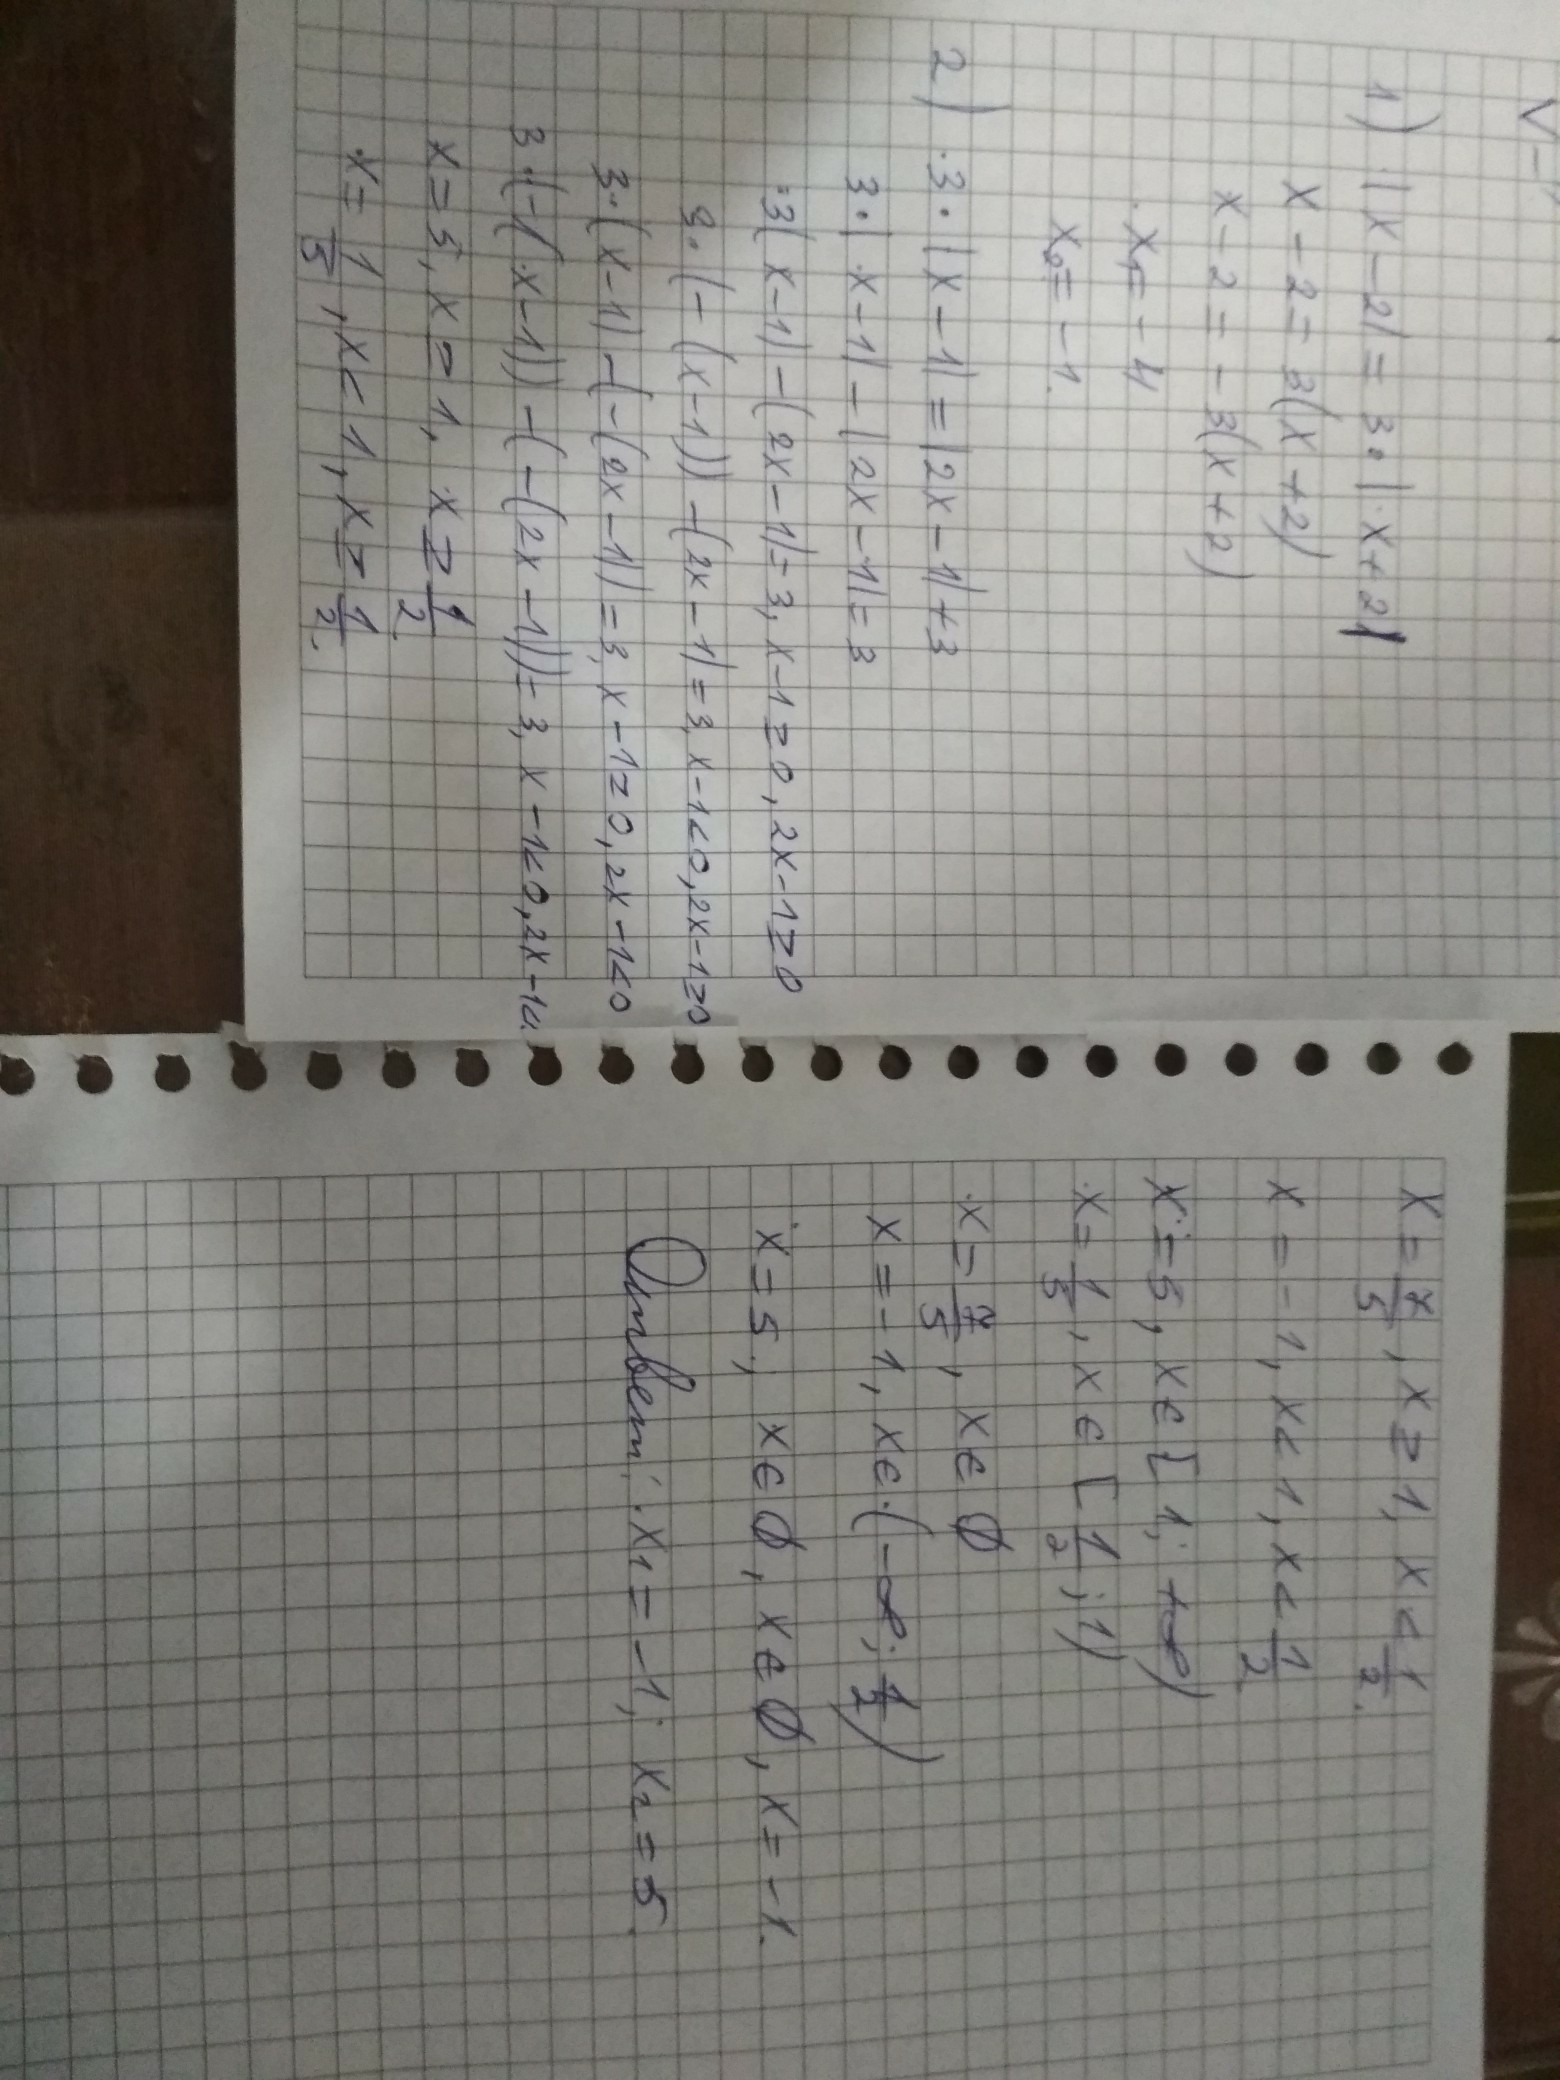 1) |x-2|=3·|x+2|
x-2=3(x+2)
x-2=-3(x+2)
x₁=-4
x₂=-1.
2) 3·|x-1|=|2x-1|+3
3·|x-1|-|2x-1|=3
3(x-1)-(2x-1)=3, x-1≥0, 2x-1≥0
3·(-(x-1))-(2x-1)=3, x-1<0, 2x-1≥0
3·(x-1)-(-(2x-1))=3, x-1≥0, 2x-1<0
3·(-(x-1))-(-(2x-1))=3, x-1<0, 2x-1<
x=5, x≥1, x≥1/2
x=1/5, x<1, x≥1/2.
x=7/5, x≥1, x<1/2.
x=-1, x<1, x<1/2
x=5, x∈[1; +∞)
x=1/5, x∈[1/2; 1)
x=7/5, x∈Ø
x=-1, x∈(-∞; 1/2)
x=5, x∈Ø, x∈Ø, x=-1.
Ответ: x₁=-1; x₂=5.